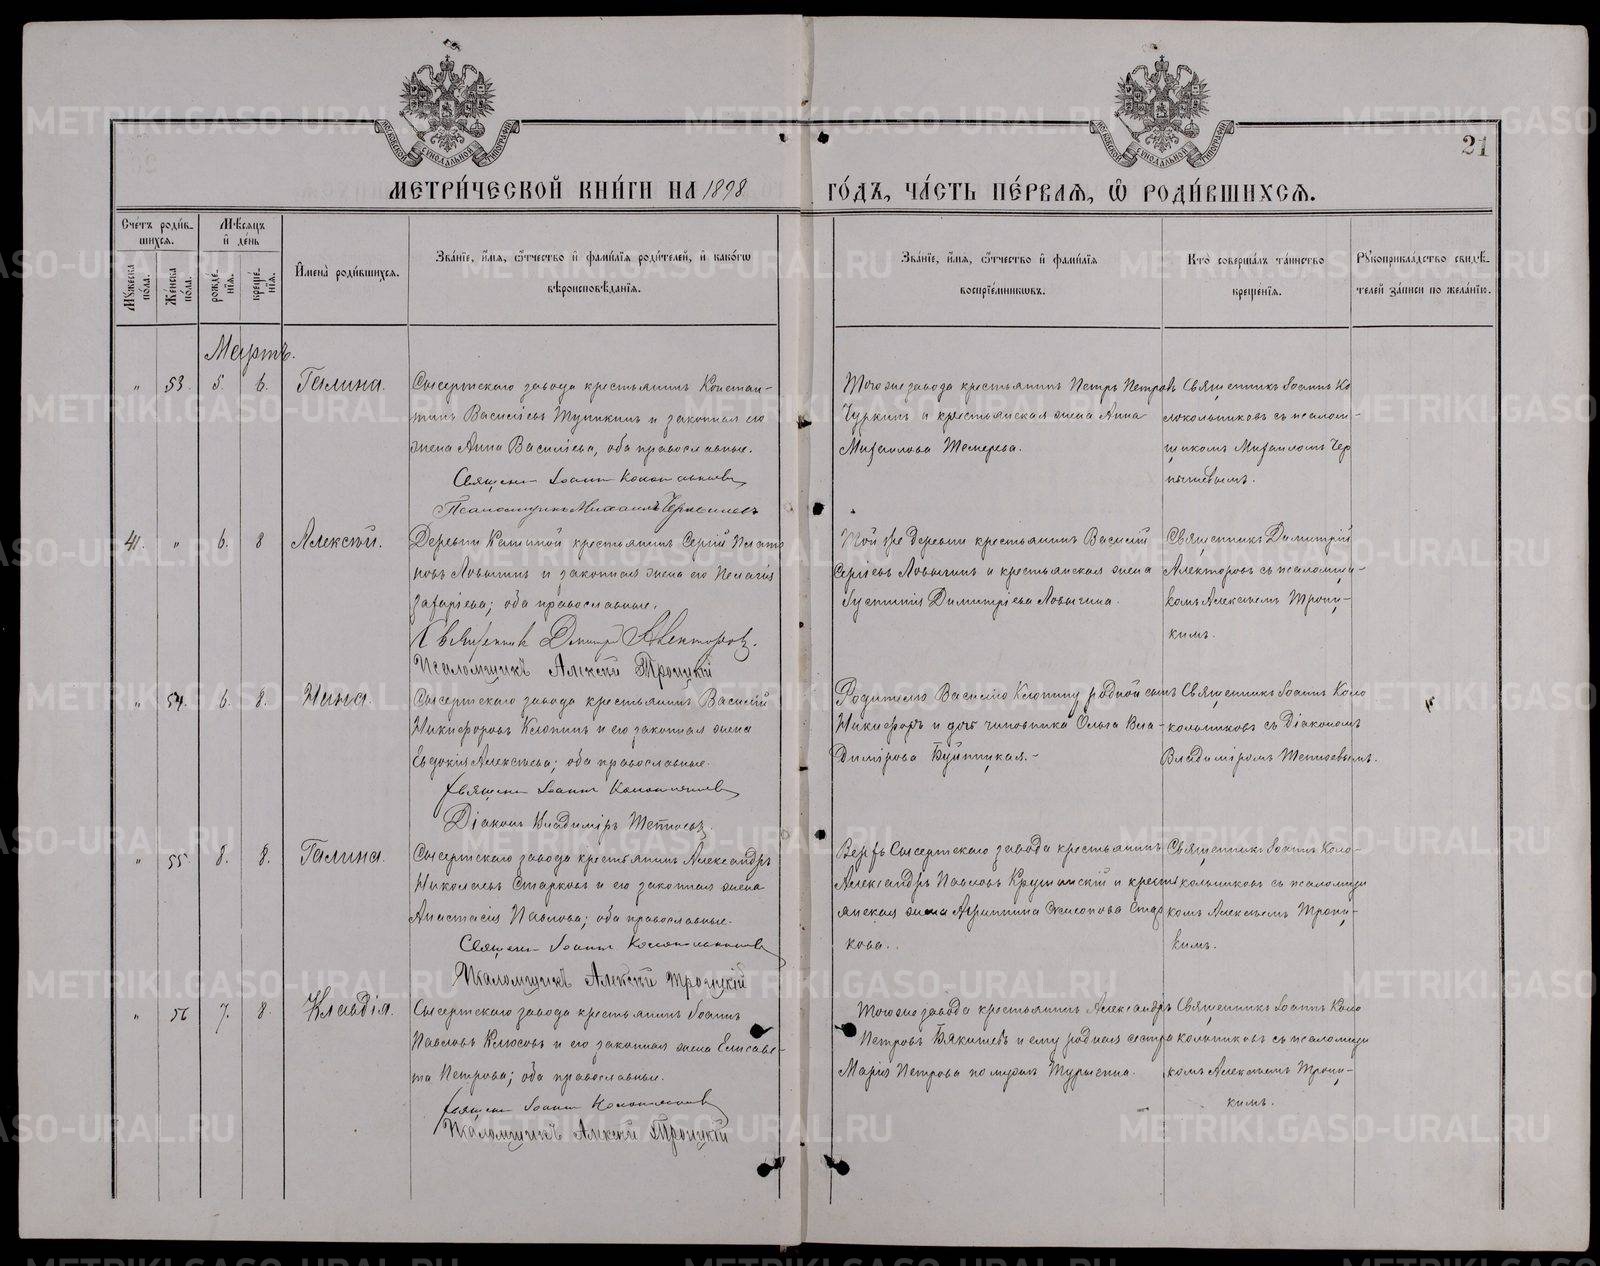 МОСКОВСКОЙ СѴНОДАЛЬНОЙ ТИПОГРАФІИ
МОСКОВСКОЙ СѴНОДАЛЬНОЙ ТИПОГРАФІИ
21
МЕТРИ́ЧЕСКОЙ КНИ́ГИ НА 1898
ГО́ДЪ, ЧА́СТЬ ПЕ́РВАЯ, Ѡ РОДИ́ВШИХСЯ.
Сче́тъ роди́в-
шихся.
Мѣ́сяцъ
и҆ де́нь
Му́жеска по́ла.
Же́нска по́ла.
рожде́нїя.
креще́нїя.
И҆мена̀ роди́вшихся.
Зва́нїе, и҆́мя, ѻ҆́тчество и҆ фами́лїя роди́телей, и҆ како́гѡ
вѣроисповѣ́данїя.
Зва́нїе, и҆́мя, ѻ҆́тчество и҆ фами́лїя
воспрїе́мниковъ.
Кто̀ соверша́лъ та́инство
креще́нїя.
Рꙋкоприкла́дство свидѣ́-
телей за́писи по жела́нїю.
Мартъ.
" 53. 5. 6. Галина.
Сысертскаго завода крестьянинъ Констан-
тинъ Васильевъ и законная его
жена Анна Васильева, оба православные.
Священ. Іоаннъ Колокольниковъ
Псаломщикъ Михаилъ
Того же завода крестьянинъ Петръ Петровъ
Чуркинъ и крестьянская жена Анна
Михаилова
Священникъ Іоаннъ Ко
локольниковъ съ псалом-
щикомъ Михаиломъ Чер
41. " 6. 8 Алексѣй.
Деревни крестьянинъ Сергій Плато
новъ Ловыгинъ и законная жена его Пелагія
Захаріева; оба православные.
Священникъ Димитрій Алекторовъ.
Псаломщикъ Алексѣй Троицкій
Той же деревни крестьянинъ Василій
Сергіевъ Ловыгинъ и крестьянская жена
Іустинія Димитріева Ловыгина.
Священникъ Димитрій
Алекторовъ съ псаломщи-
комъ Алексѣемъ Троиц-
кимъ.
" 54. 6. 8. Нина.
Сысертскаго завода крестьянинъ Василій
Никифоровъ Клопинъ и его законная жена
Евдокія Алексѣева; оба православные.
Священ. Іоаннъ Колокольниковъ
Діаконъ Владиміръ
Родителю Василію Клопину родной сынъ
Никифоръ и дочь чиновника Ольга Вла-
димірова
Священникъ Іоаннъ Коло
кольниковъ съ Діакономъ
Владиміромъ
" 55. 8. 8. Галина.
Сысертскаго завода крестьянинъ Александръ
Николаевъ Старковъ и его законная жена
Анастасія Павлова; оба православные.
Священ. Іоаннъ Колокольниковъ
Псаломщикъ Алексѣй Троицкій
Верхъ Сысертскаго завода крестьянинъ
Александръ Павловъ и кресть
янская жена Агриппина Стар
кова.
Священникъ Іоаннъ Коло-
кольниковъ съ псаломщи
комъ Алексѣемъ Троиц-
кимъ.
" 56 7. 8. Клавдія.
Сысертскаго завода крестьянинъ Іоаннъ
Павловъ Клюсовъ и его законная жена Елисаве-
та Петрова; оба православные.
Священ. Іоаннъ Колокольниковъ
Псаломщикъ Алексѣй Троицкій
Того же завода крестьянинъ Александръ
Петровъ и ему родная сестра
Марія Петрова по мужѣ Турыгина.
Священникъ Іоаннъ Коло
кольниковъ съ псаломщи
комъ Алексѣемъ Троиц-
кимъ.
METRIKI.GASO-URAL.RU